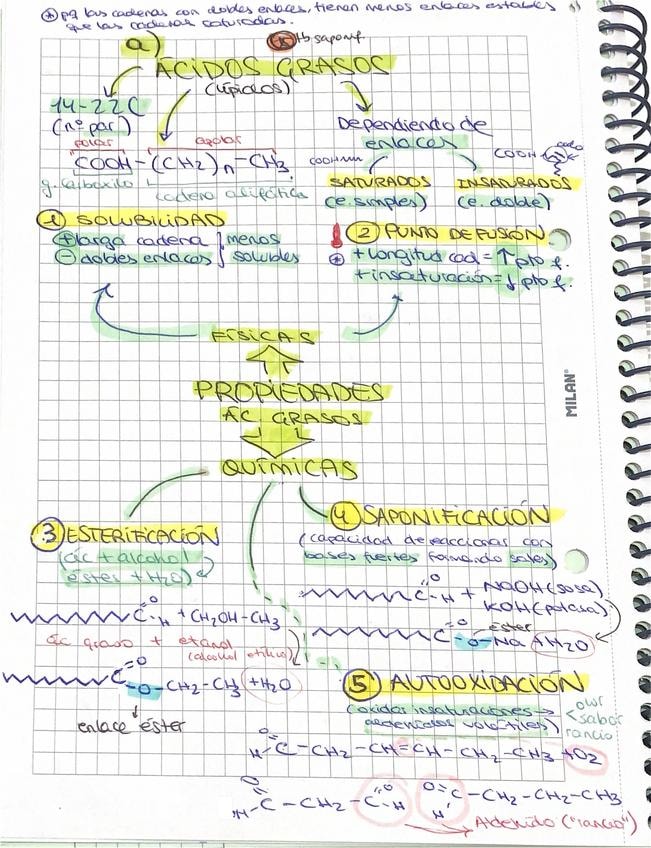 ⊛ pq las cadenas con dobles enlaces, tienen menos enlaces estables
que las cadenas saturadas.
a)
ÁCIDOS GRASOS
(lípidos)
14-22C
(nº par)
polar
apolar
COOH-(CH2)n-CH3
g. carboxilo
cadena alifática
Dependiendo de
enlaces
COOH
COOH
SATURADOS
(e. simples)
INSATURADOS
(e. doble)
① SOLUBILIDAD
⊕ larga cadena
⊖ dobles enlaces
menos
solubles
② PUNTO DE FUSIÓN
⊛ + longitud cad = ↑ pto f.
+ insaturación = ↓ pto f.
FÍSICAS
PROPIEDADES
ÁC GRASOS
QUÍMICAS
③ ESTERIFICACIÓN
(ác + alcohol
éster + H2O)
C=O-H + CH2OH-CH3
ác graso + etanol
(alcohol etílico)
C=O-O-CH2-CH3 + H2O
enlace éster
④ SAPONIFICACIÓN
(capacidad de reaccionar con
bases fuertes formando sales)
C=O-H + NaOH (sosa)
KOH (potasa)
éster
C=O-O-Na + H2O
⑤ AUTOOXIDACIÓN
(oxidar insaturaciones →
aldehídos volátiles)
olor
sabor
rancio
H-C=O-CH2-CH=CH-CH2-CH3 + O2
H-C=O-CH2-C=O-H O=C-H-CH2-CH2-CH3
Aldehído ("rancio")
MILAN